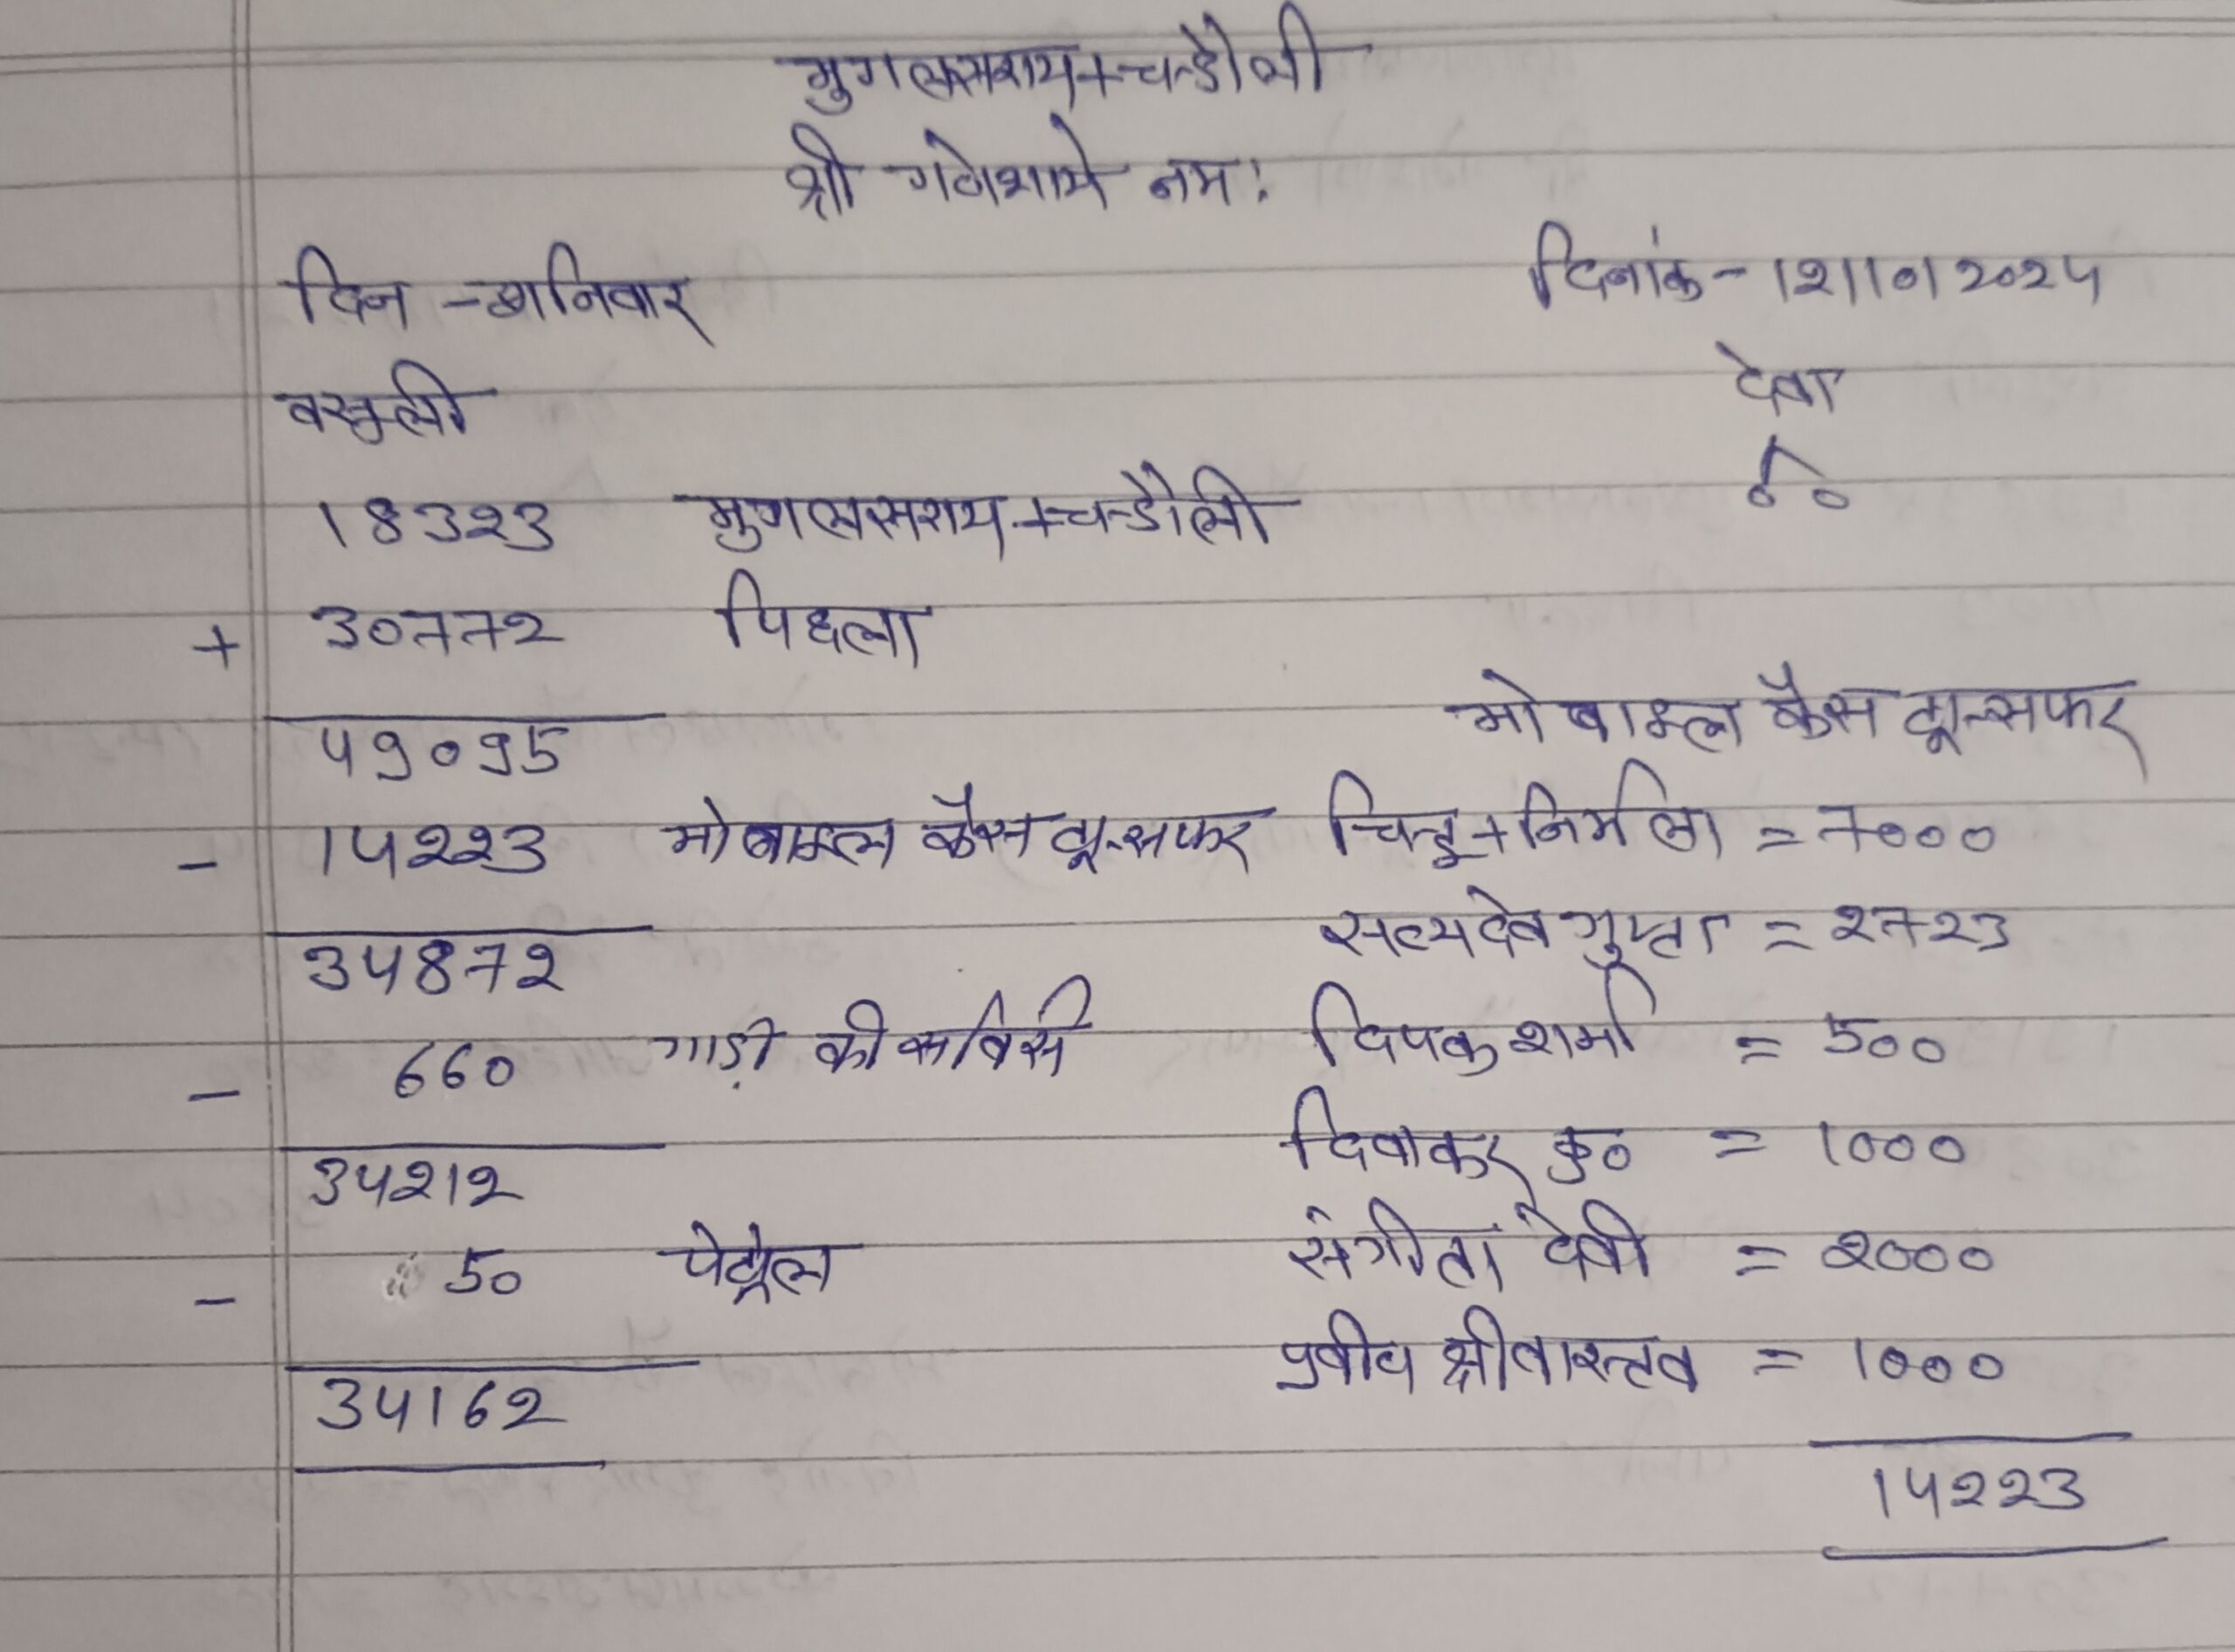 मुगलसराय+चन्डौली
श्री गणेशाये नम:
दिन - शनिवार दिनांक - 12|10|2024
वसुली देवा
18323 मुगलसराय+चन्डौली
+ 30772 पिछला
49095 मोबाइल कैस ट्रान्सफर
- 14223 मोबाइल कैस ट्रान्सफर चिन्टू+निर्मला = 7000
34872 सत्यदेव गुप्ता = 2723
- 660 गाड़ी की सर्विस दिपक शर्मा = 500
34212 दिवाकर कु० = 1000
- 50 पेट्रोल संगीता देवी = 2000
34162 श्रीवास्तव = 1000
14223